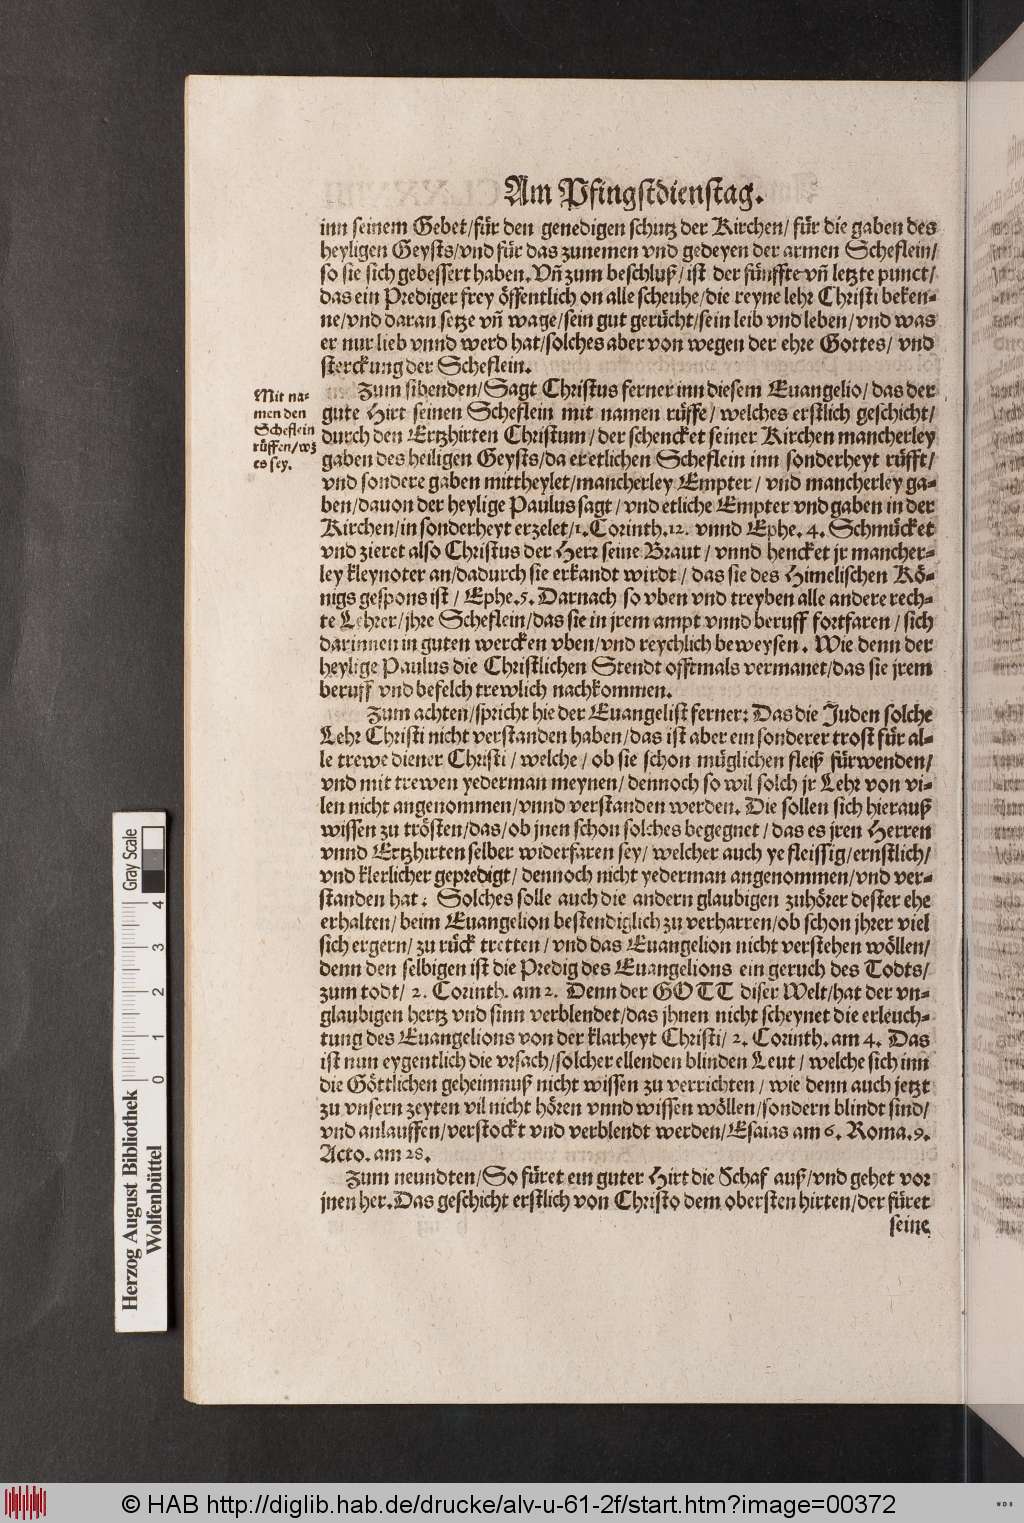 Am Pfingstdienstag.
inn seinem Gebet/für den genedigen schutz der Kirchen/ für die gaben des
heyligen Geysts/vnd für das zunemen vnd gedeyen der armen Scheflein/
so sie sich gebessert haben. Vñ zum beschluß/ ist der fünffte vñ letzte punct/
das ein Prediger frey öffentlich on alle scheuhe/die reyne lehr Christi beken-
ne/vnd daran setze vñ wage/sein gut gerücht/sein leib vnd leben/vnd was
er nur lieb vnnd werd hat/solches aber von wegen der ehre Gottes/ vnd
sterckung der Scheflein.
Mit na-
men den
Scheflein
rüffen/wz
es sey.
Zum sibenden/Sagt Christus ferner inn diesem Euangelio/das der
gute Hirt seinen Scheflein mit namen rüffe/ welches erstlich geschicht/
durch den Ertzhirten Christum/der schencket seiner Kirchen mancherley
gaben des heiligen Geysts/da er etlichen Scheflein inn sonderheyt rüfft/
vnd sondere gaben mittheylet/mancherley Empter/ vnd mancherley ga-
ben/dauon der heylige Paulus sagt/vnd etliche Empter vnd gaben in der
Kirchen/in sonderheyt erzelet/1. Corinth.12. vnnd Ephe. 4. Schmücket
vnd zieret also Christus der Herr seine Braut/ vnnd hencket jr mancher-
ley kleynoter an/dadurch sie erkandt wirdt/ das sie des Himelischen Kö-
nigs gespons ist/ Ephe.5. Darnach so vben vnd treyben alle andere rech-
te Lehrer/jhre Scheflein/das sie in jrem ampt vnnd beruff fortfaren/ sich
darinnen in guten wercken vben/vnd reychlich beweysen. Wie denn der
heylige Paulus die Christlichen Stendt offtmals vermanet/das sie jrem
beruff vnd befelch trewlich nachkommen.
Zum achten/spricht hie der Euangelist ferner: Das die Juden solche
Lehr Christi nicht verstanden haben/das ist aber ein sonderer trost für al-
le trewe diener Christi/ welche/ ob sie schon müglichen fleiß fürwenden/
vnd mit trewen yederman meynen/ dennoch so wil solch jr Lehr von vi-
len nicht angenommen/vnnd verstanden werden. Die sollen sich hierauß
wissen zu trösten/das/ob jnen schon solches begegnet/ das es jren Herren
vnnd Ertzhirten selber widerfaren sey/ welcher auch ye fleissig/ernstlich/
vnd klerlicher gepredigt/ dennoch nicht yederman angenommen/vnd ver-
standen hat: Solches solle auch die andern glaubigen zuhörer dester ehe
erhalten/ beim Euangelion bestendiglich zu verharren/ob schon jhrer viel
sich ergern/ zu rück tretten/ vnd das Euangelion nicht verstehen wöllen/
denn den selbigen ist die Predig des Euangelions ein geruch des Todts/
zum todt/ 2. Corinth. am 2. Denn der GOTT diser Welt/hat der vn-
glaubigen hertz vnd sinn verblendet/das jhnen nicht scheynet die erleuch-
tung des Euangelions von der klarheyt Christi/ 2. Corinth. am 4. Das
ist nun eygentlich die vrsach/solcher ellenden blinden Leut/ welche sich inn
die Göttlichen geheimnuß nicht wissen zu verrichten/ wie denn auch jetzt
zu vnsern zeyten vil nicht hören vnnd wissen wöllen/sondern blindt sind/
vnd anlauffen/verstockt vnd verblendt werden/Esaias am 6. Roma.9.
Acto. am 28.
Zum neundten/So füret ein guter Hirt die Schaf auß/vnd gehet vor
jnen her.Das geschicht erstlich von Christo dem obersten hirten/der füret
seine
Herzog August Bibliothek
Wolfenbüttel
Gray Scale
0 1 2 3 4
© HAB http://diglib.hab.de/drucke/alv-u-61-2f/start.htm?image=00372